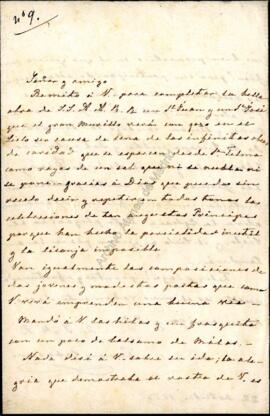 nº 9.
Señor y amigo
Remito á V. para completar la bella
obra de SS. A A. R R. un Sn Juan y un Sn José
que el gran Murillo verá con gozo en el
Cielo ser causa de una de las infinitas obras
de caridad que se esparcen desde Sn Telmo
como rayos de un sol que ni se nubla ni
se pone gracias á Dios que puedo sin
recelo decir y repetir en todos tonos las
celebraciones de tan augustos Principes
porque han hecho la parcialidad inutil
y la lisonja imposible
Van igualmente las composiciones de
dos jovenes y modestos poetas que como
V. verá emprenden una buena via —
Mando á V. las hilas y un frasquito
con un poco de balsamo de Malas. —
Nada diré á V. sobre su ida; la ale-
gria que demostraba el rostro de V. es